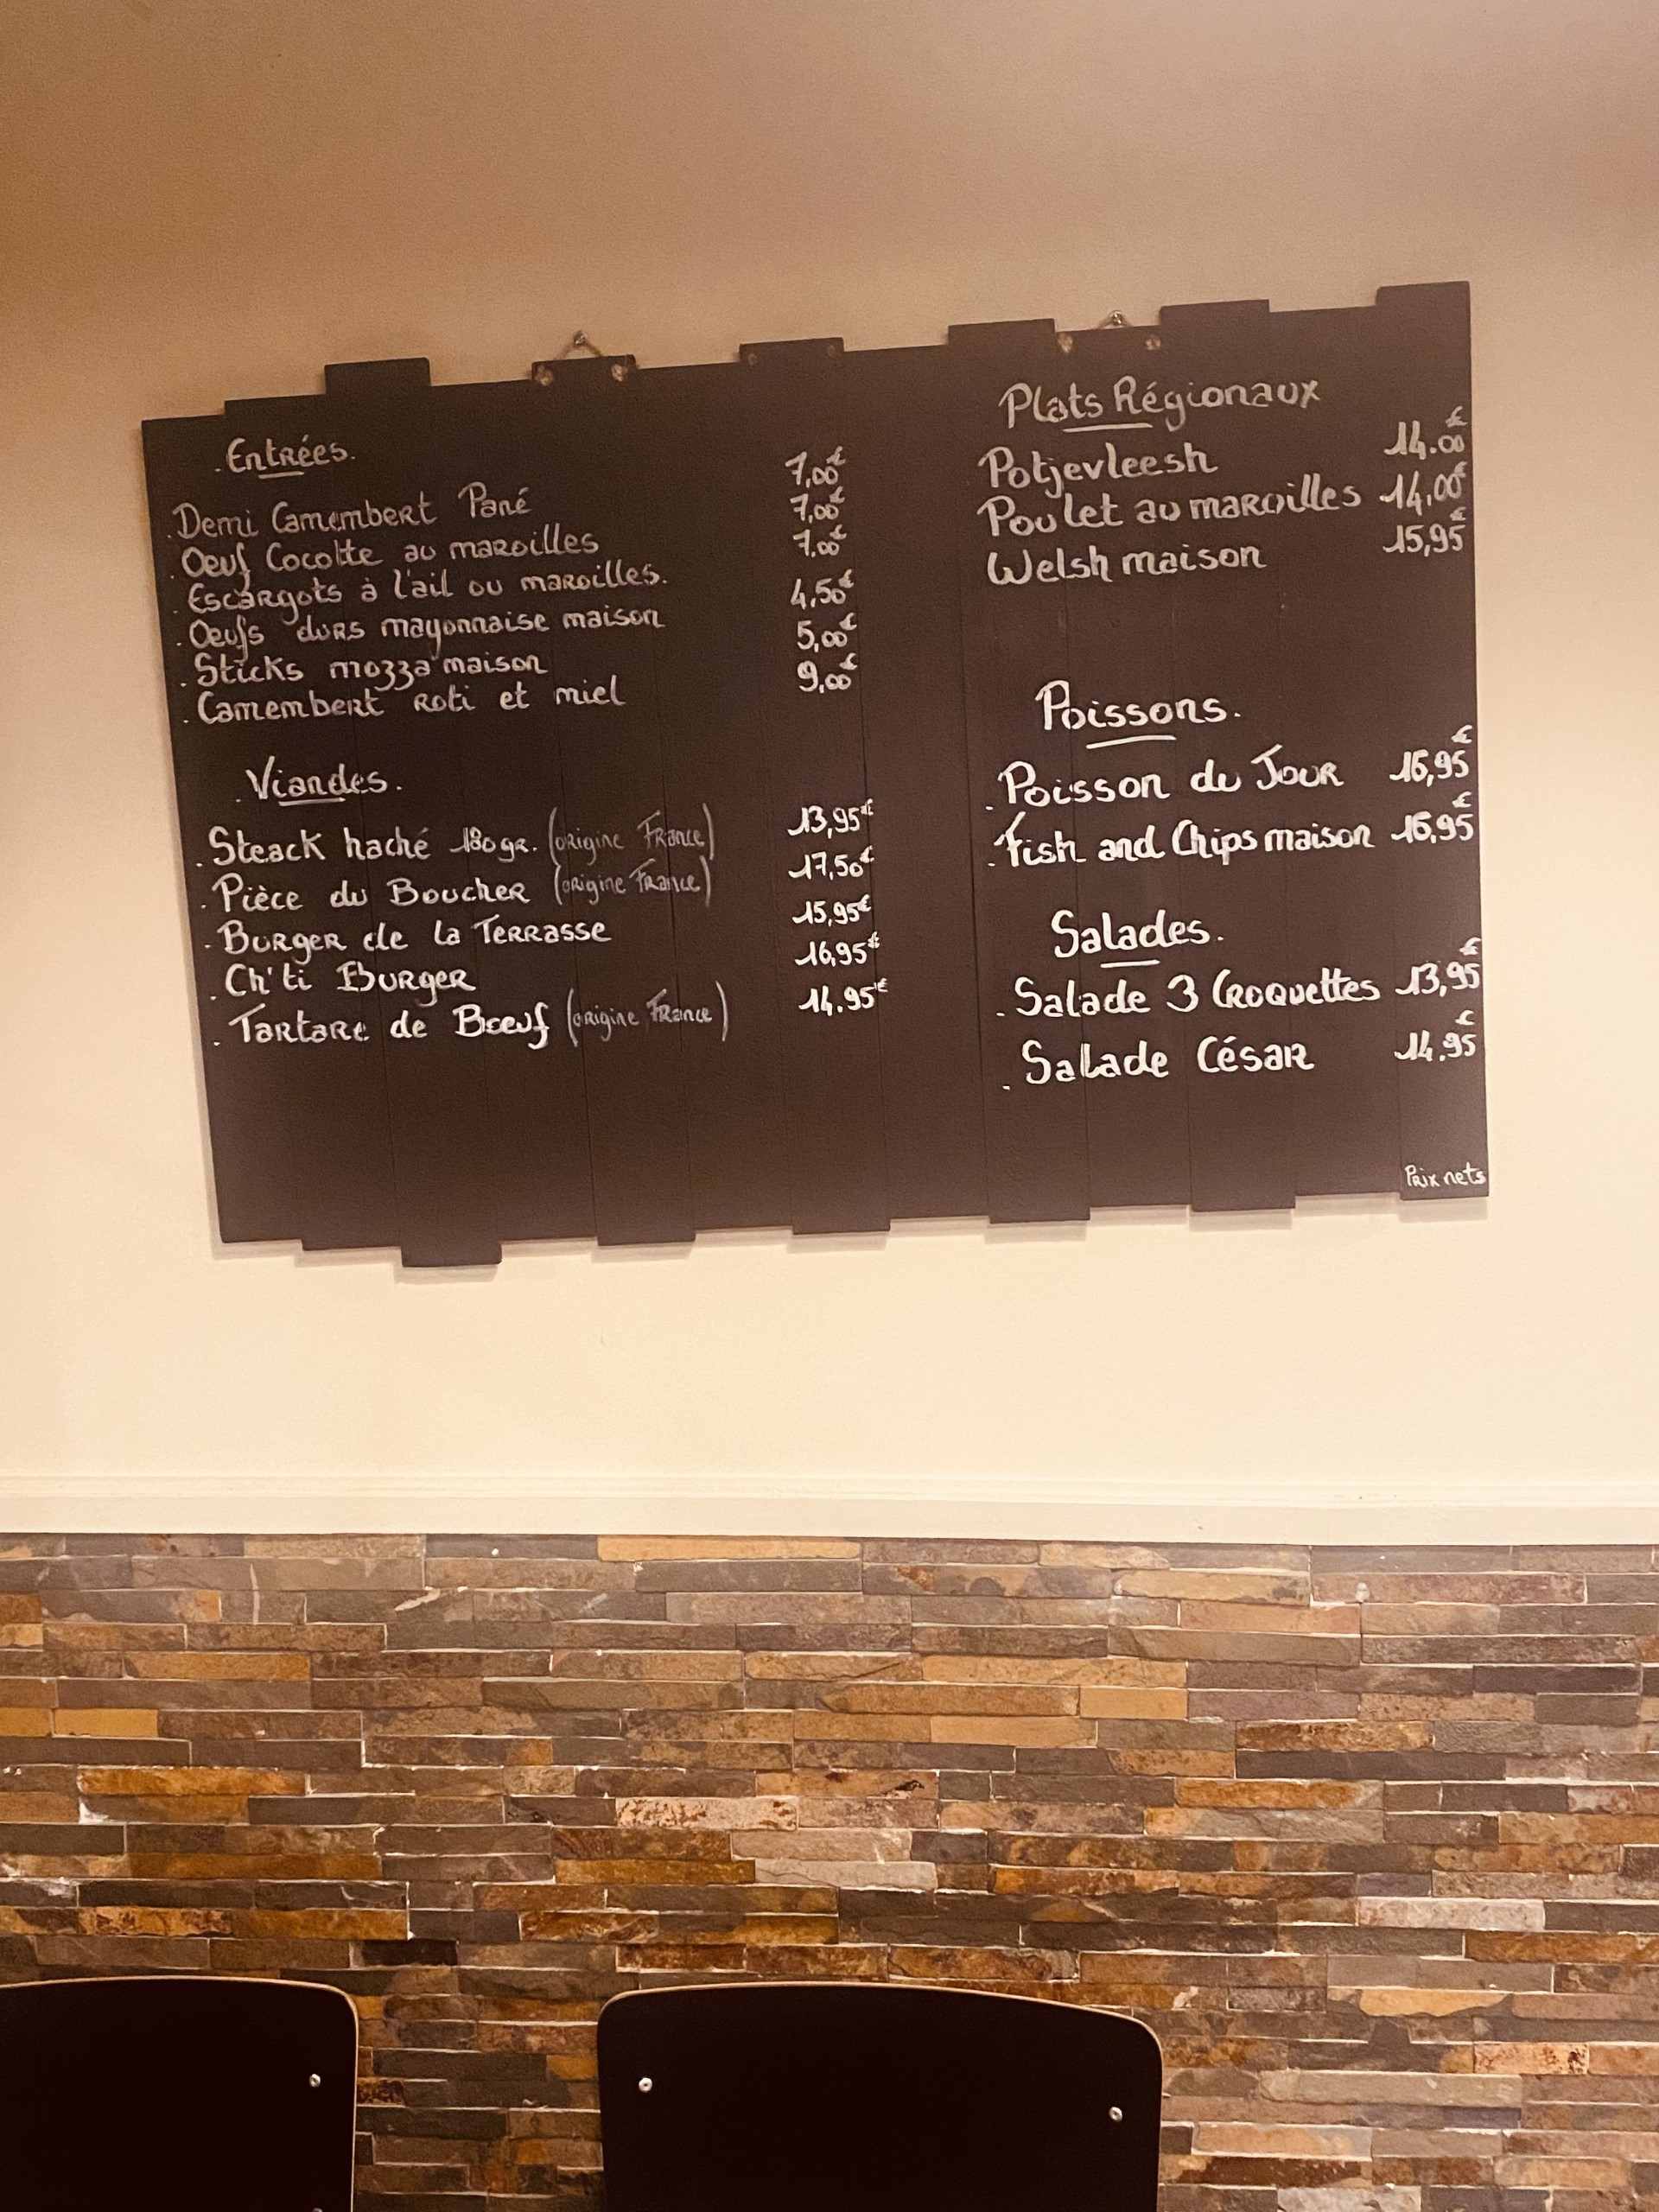 Entrées.
. Demi Camembert Pané 7,00€
. Oeuf Cocotte au maroilles 7,00€
. Escargots à l'ail ou maroilles. 7.00€
. Oeufs durs mayonnaise maison 4,50€
. Sticks mozza maison 5,00€
. Camembert Roti et miel 9,00€
. Viandes.
. Steack haché 180gr. (origine France) 13,95€
. Pièce du Boucher (origine France) 17,50€
. Burger de la Terrasse 15,95€
. Ch'ti Burger 16,95€
. Tartare de Bœuf (origine France) 14.95€
Plats Régionaux
Potjevleesh 14.00€
Poulet au maroilles 14,00€
Welsh maison 15,95€
Poissons.
. Poisson du Jour 16,95€
. Fish and Chips maison 16,95€
Salades.
. Salade 3 Croquettes 13,95€
. Salade César 14.95€
Prix nets